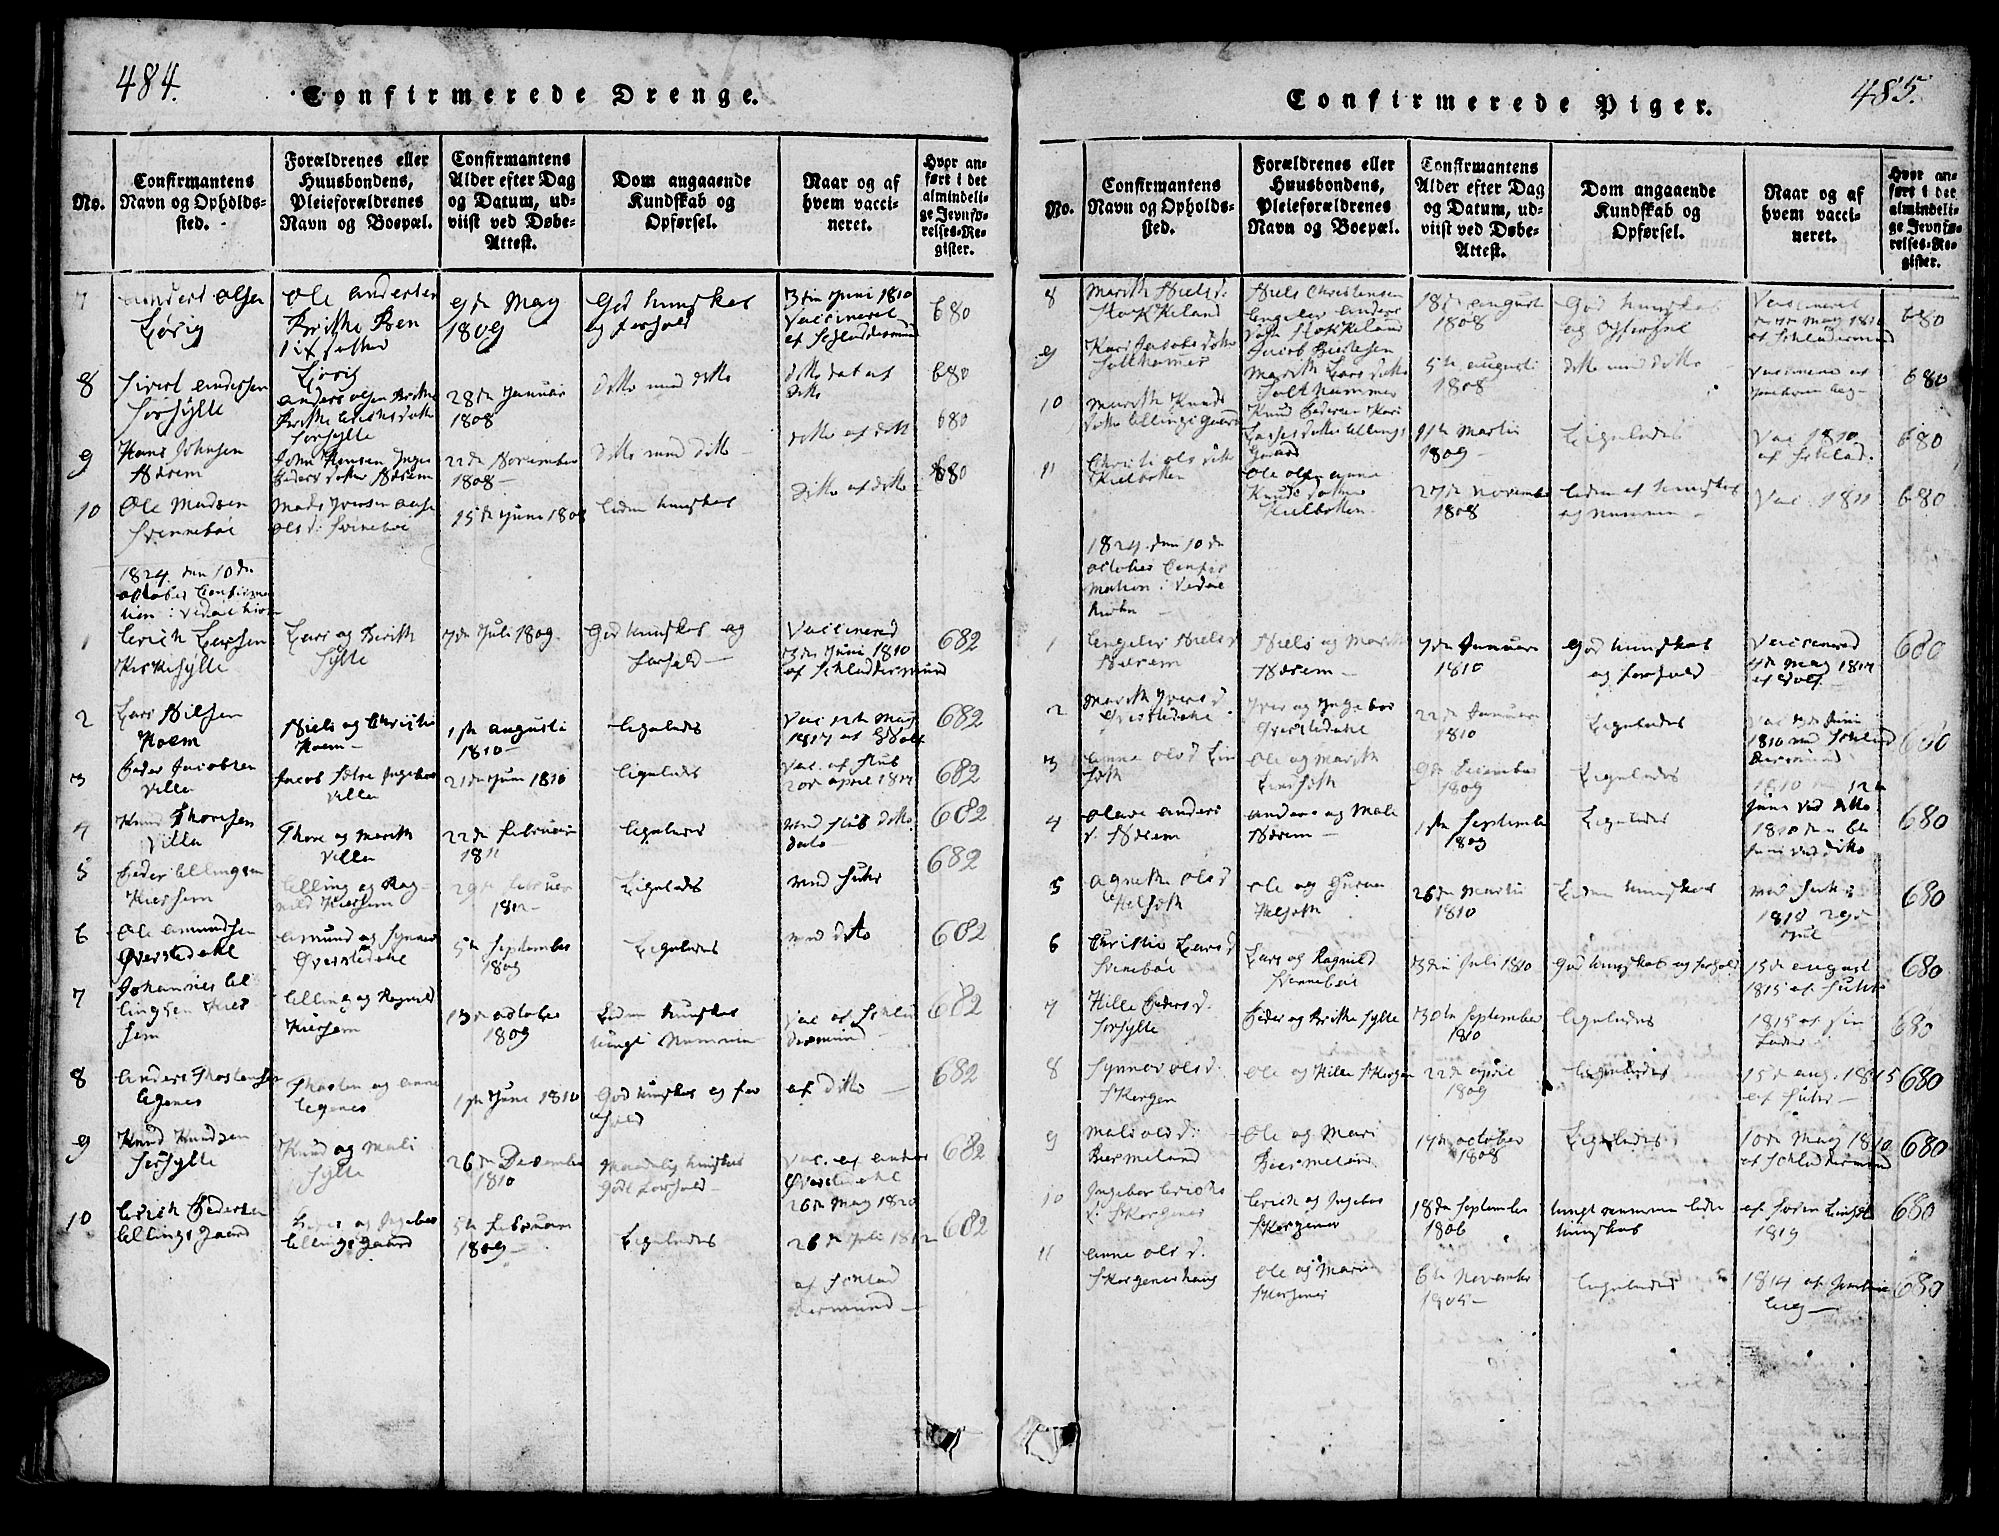 484.
Confirmerede Drenge.
No.
Confirmantens
Navn og Opholds-
sted.
Forældrenes eller
Huusbondens,
Pleieforældrenes
Navn og Boepæl.
Confirmantens
Alder efter Dag
og Datum, ud-
viist ved Døbe-
Attest.
Dom angaaende
Kundskab og
Opførsel.
Naar og af
hvem vacci-
neret.
Hvor an-
ført i det
almindeli-
ge Jevnfø-
relses-Re-
gister.
7
Anders Olsen
Ole Andersen
Brithe
9de May
1809
God kundskab
og forhold
3die Juni 1810
Vaccineret
680
8
Sivert Andersen
Forsylte
Anders Olsen
Brithe Erichsdatter
Forsylte
28de Januar
1808
ditto med ditto
ditto
680
9
Hans Johnsen
Nærem
John Hansen
Nærem
22de November
1808
Ditto med ditto
ditto af ditto
680
10
Ole Madsen
Svenneböe
Mads Iversen
Ols d: Svineböe
15de Juni 1808
Liden kundskab
ditto af ditto
680
1824 den 10de
october Confirma
tion i Vedöe
1
Erich Larsen
Kirkesylte
Lars og Berith
Sylte
7de Juli 1809
God kundskab og
forhold
Vaccinered
3de Juni 1810
af Schladdermund
682
2
Lars Nilsen
Hoem
Niels og Christie
Hoem
1ste Augusti
1810
Ligeledes
Vac 12te May
1817 af
682
3
Peder Jacobsen
Villa
Jacob
Villa
21de Juni 1810
Ligeledes
Vac. af
20de April 1817
682
4
Knud Thoresen
Villa
Thore og Marith
Villa
22de Februari
1811
Ligeledes
med ditto
682
5
Peder Ellingsen
Kiersem
Elling og Rag-
nild Kiersem
29de Februar
1812
Ligeledes
med Suhr
682
6
Ole Amundsen
Øverstedahl
Amund og Synnev
Øverstedahl
5te September
1809
Ligeledes
med ditto
682
7
Johannes El
lingsen Kier
sem
Elling og Ragnild
Kiersem
13de october
1809
Liden kundskab
ungt Nemme
Vac af Schlad
dermund
682
8
Anders Thostensen
Egenes
Thosten og Anne
Egenes
1ste Juni 1810
God kundskab og for
hold
af ditto
682
9
Knud Knudsen
Forsylte
Knud og Mali
Sylte
26de December
1810
Maadelig kundskab
Godt forhold
Vac. af Anders
Øverstedahl
26de May 1820
682
10
Erich Pedersen
Ellingsgaard
Peder og Ingebor
Ellingsgaard
5te Februar
1809
Ligeledes
26de Juli 1812
af Schlad
dermund
682
485.
Confirmerede Piger.
No.
Confirmantens
Navn og Opholds-
sted.
Forældrenes eller
Huusbondens,
Pleieforældrenes
Navn og Boepæl.
Confirmantens
Alder efter Dag
og Datum, ud-
viist ved Døbe-
Attest.
Dom angaaende
Kundskab og
Opførsel.
Naar og af
hvem vacci-
neret.
Hvor an-
ført i det
almindeli-
ge Jevnfø-
relses-Re-
gister.
8
Marith Niels d:
Stokkeland
Niels Christensen
Engelev Anders
datter Stokkeland
18de Augusti
1808
God kundskab
og opførsel
Vaccineret
May 1810
af Schladermund
680
9
Kari Jacobs datter
Solthamer
Jacob
Marith Lars datter
Solthammer
5te Augusti
1808
ditto med ditto
Vaccinered af
680
10
Marith Knuds
datter Ellingsgaard
Knud Pedersen Kari
Lasses datter Ellings
Gaard
11te Martii
1809
Ligeledes
Vac 1810
af Schlad.
680
11
Christi Ols datter
Kielbotten
Ole Olsen Anne
Knuds datter
Kielbotten
27de November
1808
Liden af kundskab
og Nemme
Vac. 1811
680
1824. den 10de
october Confir
mation i Vedöe
Kirke
1
Engelev Niels d
Nærem
Niels og Marith
Nærem
7de Januari
1810
God kundskab
og forhold
Vaccinered
4de May 1817
680
2
Marith Ivers d
Øverstedahl
Iver og Ingebor
Øverstedahl
22de Januari
1810
Ligeledes
Vac 7de Juni
1810 ved Schlad
dermund
680
3
Anne Ols d Lin
Ole og Marith
9de December
1809
Ligeledes
1810
Juni ved ditto
4
Olave Anders
d. Nærem
Anders og Mali
Nærem
1ste September
1809
Ligeledes
1810 den 6te
Juni ved ditto
680
5
Agnethe Ols d
Helseth
Ole og Guren
Helseth
26de Martii
1810
Liden kundskab
med Suhr
1818 29de
Jul
680
6
Christie Lars d
Svineböe
Lars og Ragnild
Svenneböe
3die Juli 1810
God kundskab og forhold
15de August
1815 af Suhr
680
7
Hille Peders d.
Forsylte
Peder og Brithe Sylte
30te September
1810
Ligeledes
1815 af
680
8
Synnev Ols d.
Skorgen
Ole og Hille Skorgen
22de April
1809
Ligeledes
15de aug. 1815
af Suhr
680
9
Mali Ols d:
Biermeland
Ole og Mari
Biermeland
17te october
1808
Ligeledes
10de May 1810
af Schladdermund
680
10
Ingebor Erichs
d: Skorgenes
Erich og Ingebor
Skorgenes
18de September
1806
ungt nemme liden
kundskab
af Søren
1819
680
11
Anne Ols d.
Skorgenes
Ole og Mari
Skorgenes
6te November
1805
Ligeledes
1814 af
680